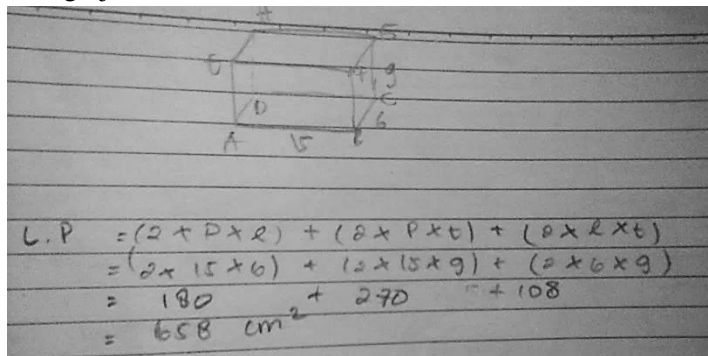 H G
E F 9
D C
6
A 15 B
L.P = (2 x P x l) + (2 x P x t) + (2 x l x t)
= (2 x 15 x 6) + (2 x 15 x 9) + (2 x 6 x 9)
= 180 + 270 + 108
= 658 cm²